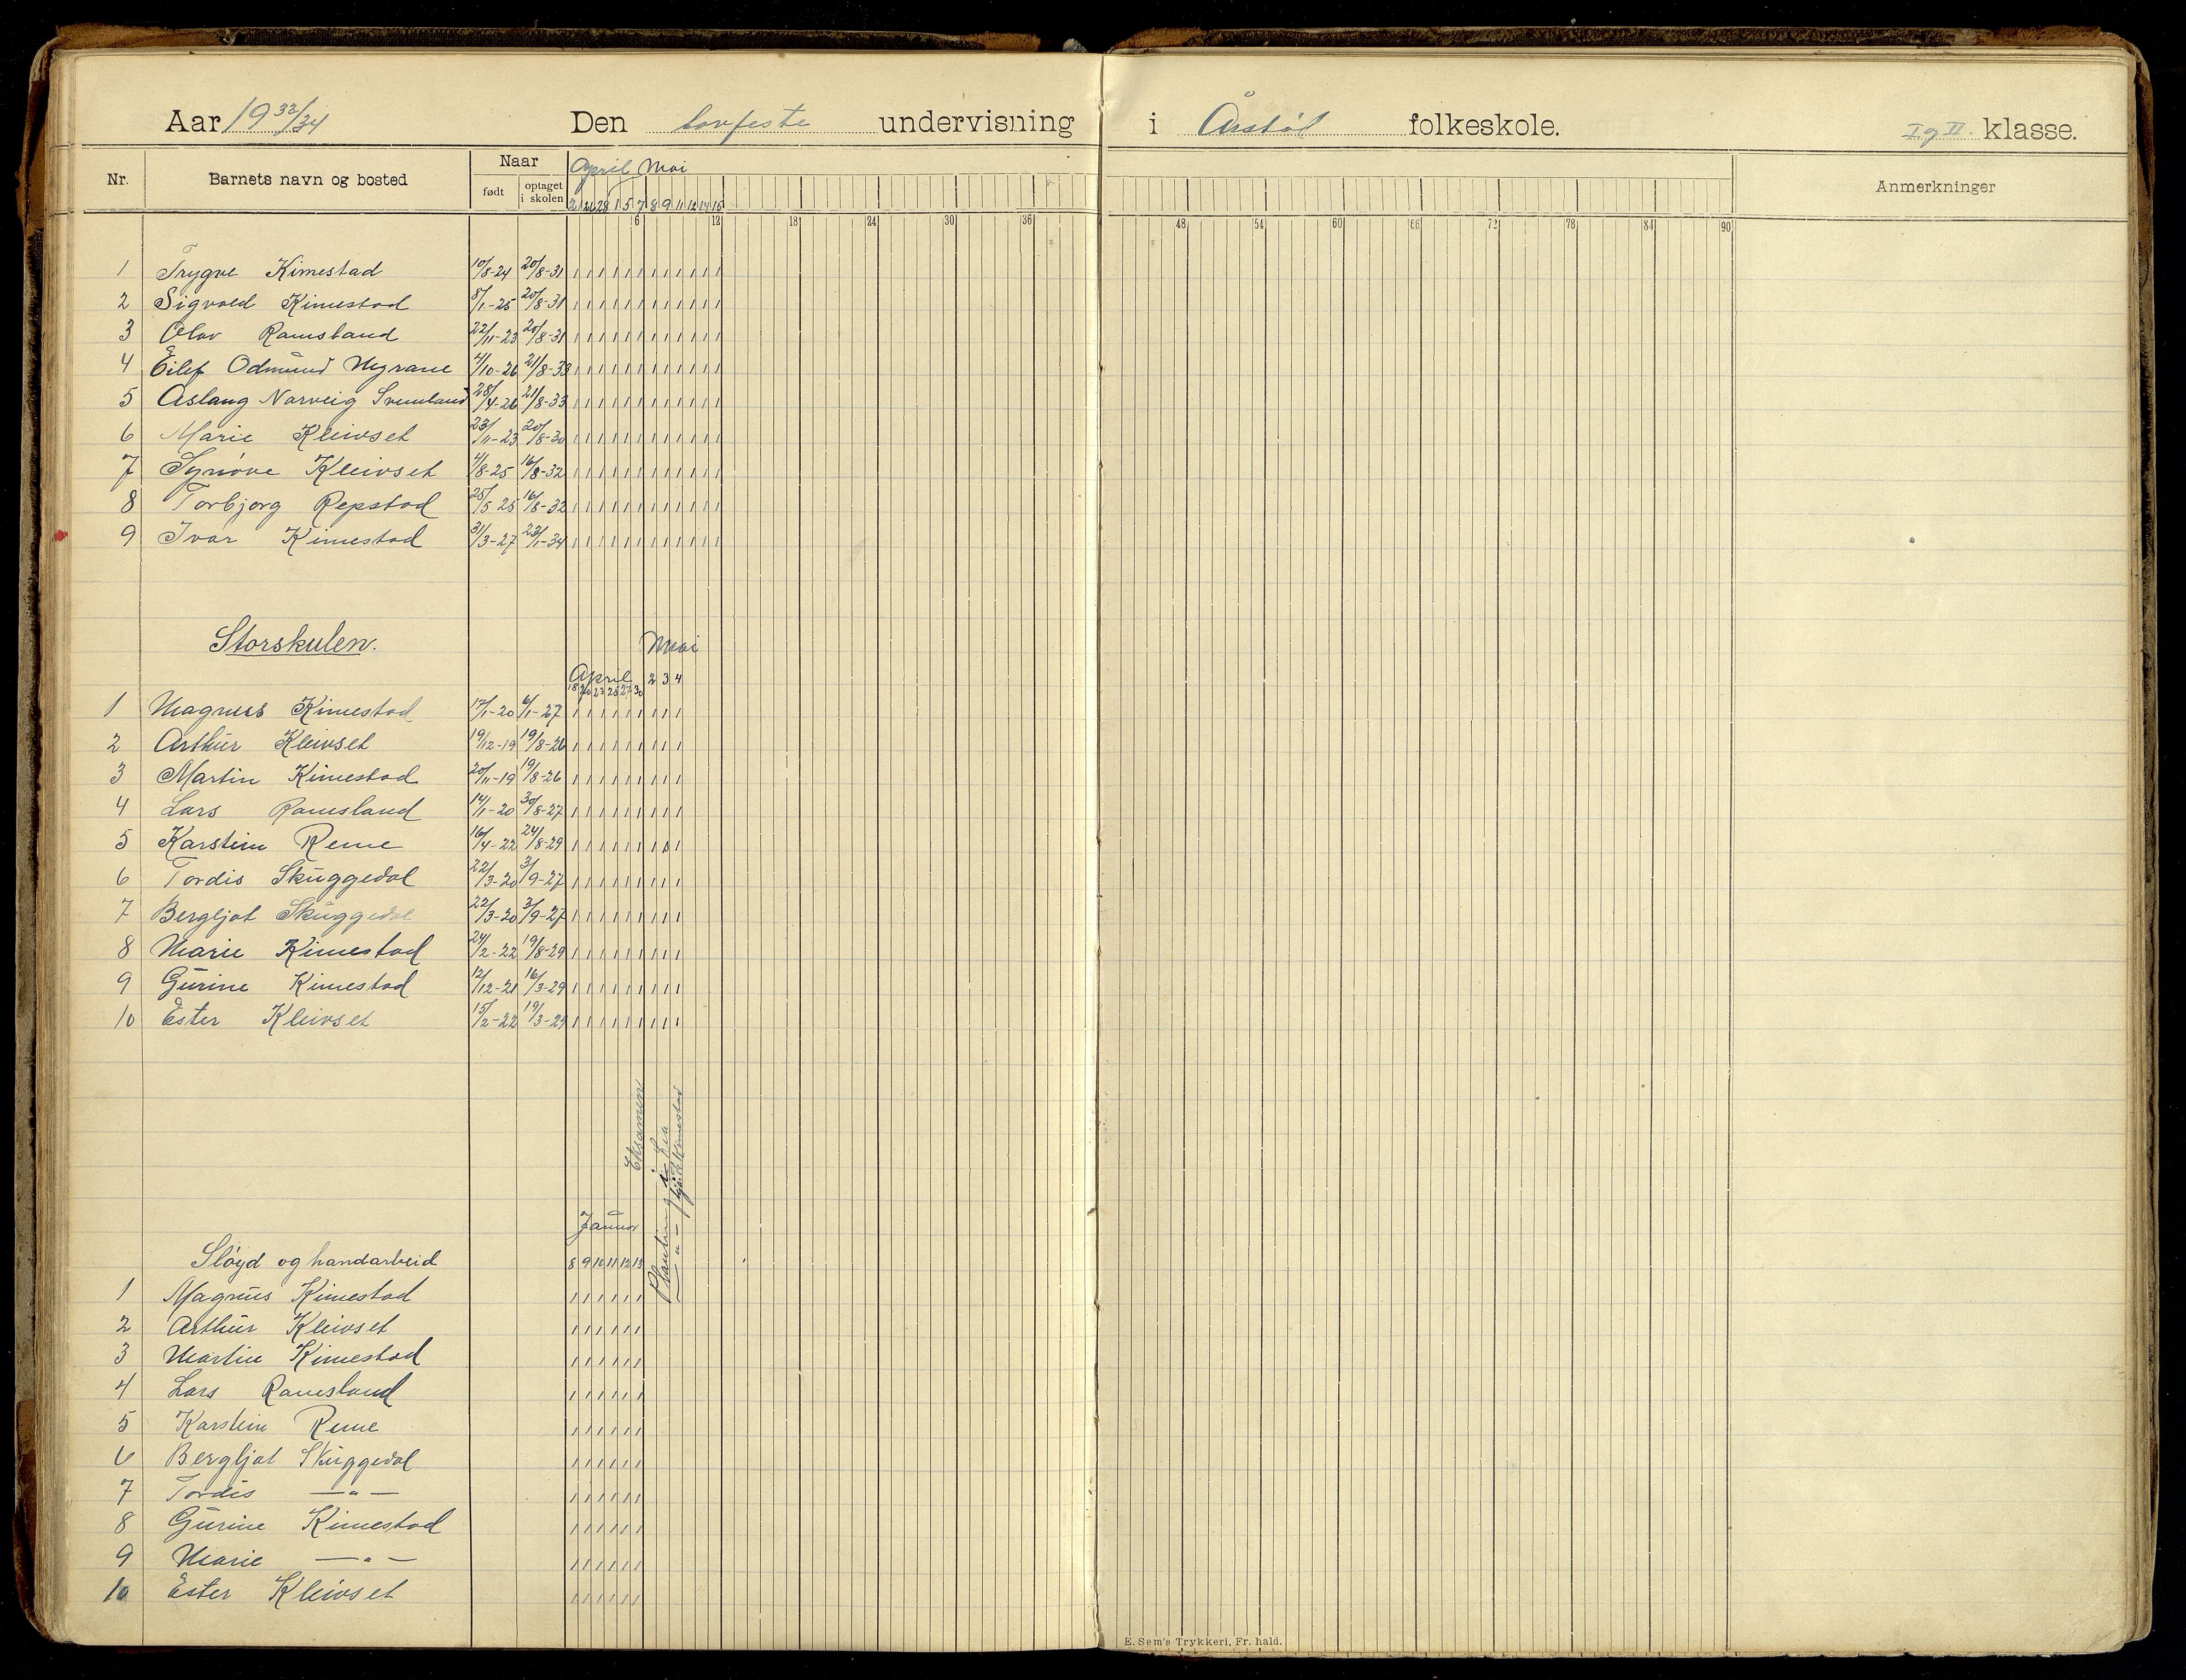 Aar 19 33/34 Den lovfeste undervisning i Årstøl folkeskole. I og II klasse.
Nr. Barnets navn og bosted Naar født optaget i skolen April Mai Anmerkninger
26 28 1 5 7 8 9 11 12 14 15
6 12 18 24 30 36 48 54 60 66 72 78 84 90
1 Trygve Kimestad 10/8-24 20/8-31
2 Sigvald Kimestad 8/1-25 20/8-31
3 Olav Ramsland 22/11-23 20/8-31
4 Eilef Odmund Nyrane 4/10-26 21/8-33
5 Aslaug Norveig Svemland 28/4-26 21/8-33
6 Marie Kleivset 23/11-23 20/8-30
7 Synøve Kleivset 4/8-25 16/8-32
8 Torbjørg Repstad 25/5 25 16/8-32
9 Ivar Kimestad 31/3-27 23/1-34
Storskulen. Mai
April 2 3 4
18 20 23 25 27 30
1 Magnus Kimestad 17/1-20 6/1-27
2 Arthur Kleivset 19/12-19 19/8-26
3 Martin Kimestad 20/11-19 19/8-26
4 Lars Ramsland 14/1-20 30/8-27
5 Karstein Reme 16/4-22 24/8-29
6 Tordis Skuggedal 22/3-20 3/9-27
7 Bergljot Skuggedal 22/3-20 3/9-27
8 Marie Kimestad 24/2-22 19/8-29
9 Gurine Kimestad 12/12-21 16/3-29
10 Ester Kleivset 15/2-22 19/3-29
Eksamen
Planting i Lia
— " — Kimestad
Januar
Sløyd og handarbeid 8 9 10 11 12 13
1 Magnus Kimestad
2 Arthur Kleivset
3 Martin Kimestad
4 Lars Ramsland
5 Karstein Reme
6 Bergljot Skuggedal
7 Tordis — " —
8 Gurine Kimestad
9 Marie — " —
10 Ester Kleivset
E. Sem's Trykkeri, Fr. hald.